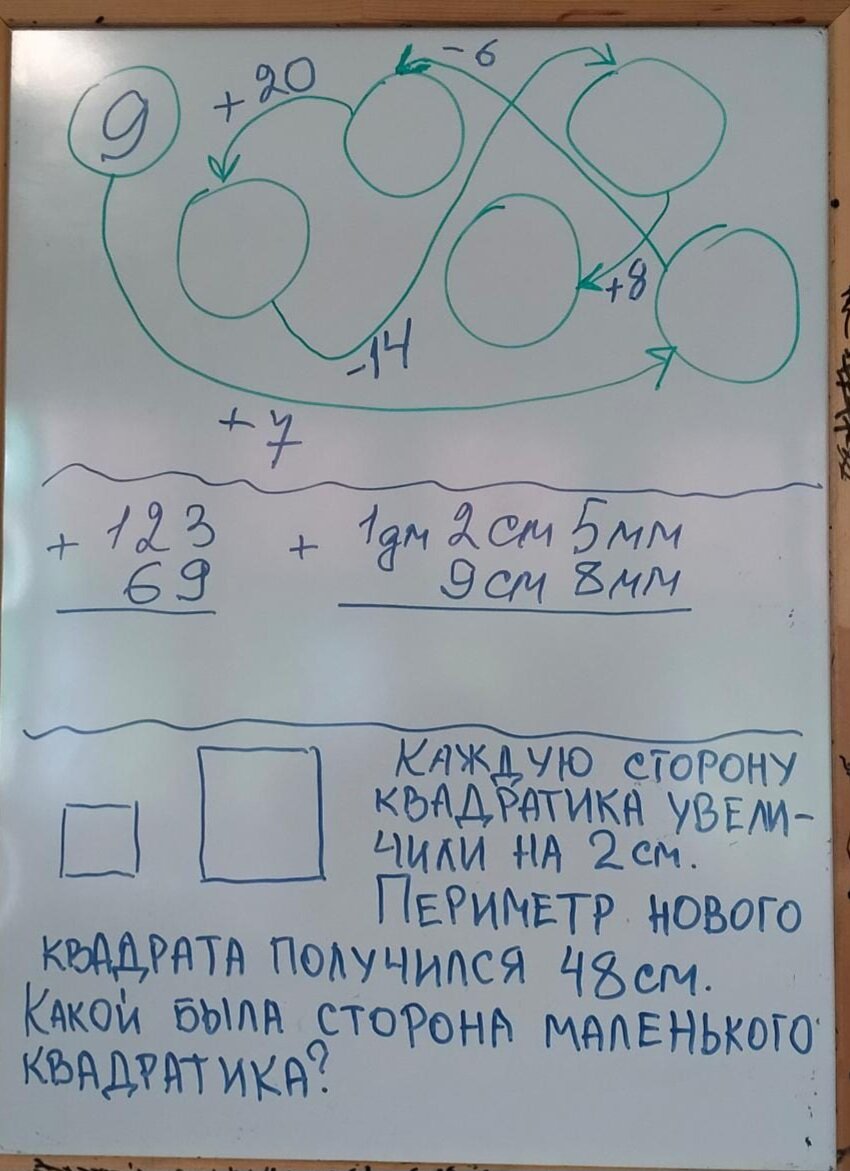 -6
+20
9
+8
-14
+7
+ 123
69
+ 1дм 2см 5мм
9см 8мм
КАЖДУЮ СТОРОНУ
КВАДРАТИКА УВЕЛИ-
ЧИЛИ НА 2см.
ПЕРИМЕТР НОВОГО
КВАДРАТА ПОЛУЧИЛСЯ 48см.
КАКОЙ БЫЛА СТОРОНА МАЛЕНЬКОГО
КВАДРАТИКА?